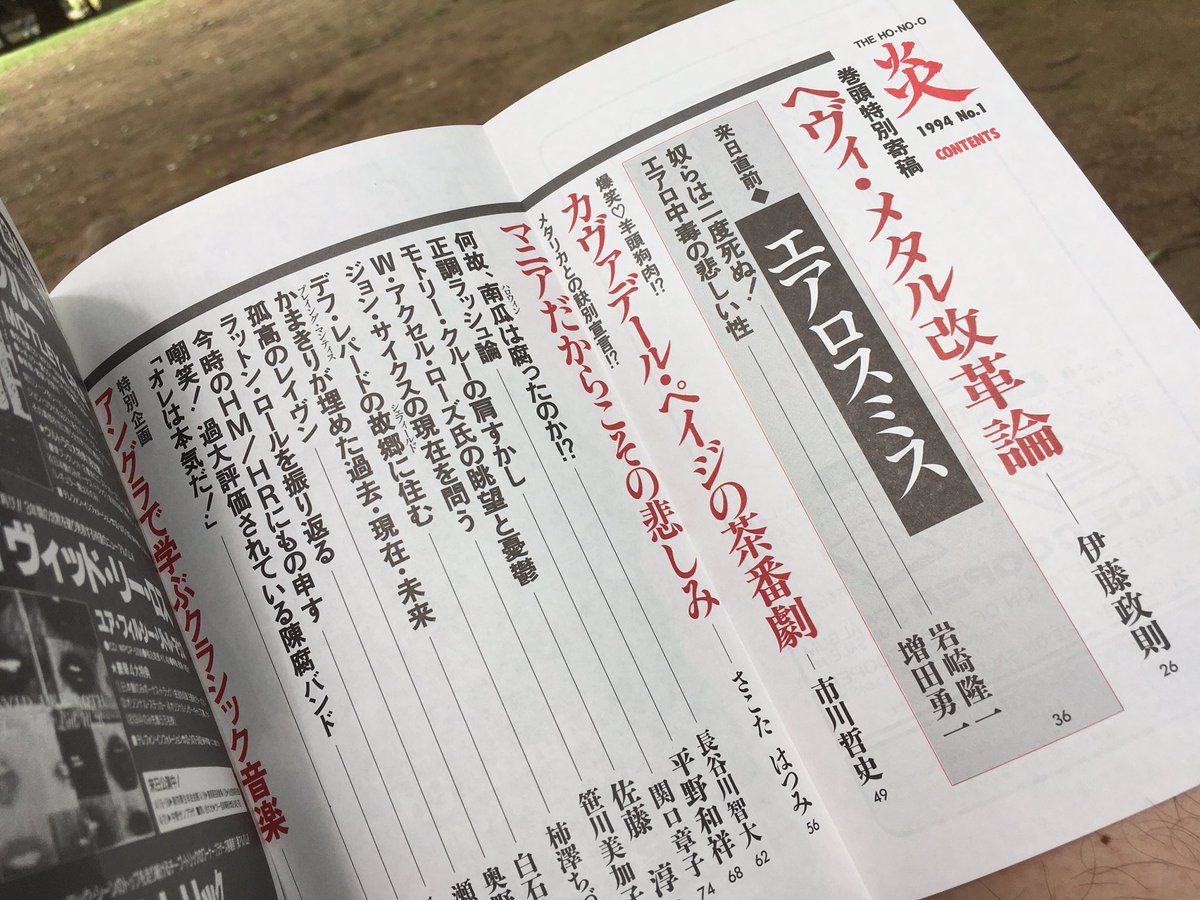 THE HO・NO・O
炎
1994 No.1
CONTENTS
巻頭特別寄稿
ヘヴィ・メタル改革論
伊藤政則
26
来日直前◆
エアロスミス
奴らは二度死ぬ!
エアロ中毒の悲しい性
岩崎隆一
増田勇一
36
爆笑♡羊頭狗肉!?
カヴァデール・ペイジの茶番劇
市川哲史
49
メタリカとの訣別宣言!?
マニアだからこその悲しみ
さこた はつみ
56
何故、南瓜は腐ったのか!?
ハロウィン
長谷川智大
62
正調ラッシュ論
平野和祥
68
モトリー・クルーの肩すかし
関口章子
74
W・アクセル・ローズ氏の眺望と憂鬱
佐藤 淳
ジョン・サイクスの現在を問う
笹川美加子
デフ・レパードの故郷に住む
シェフィールド
柿澤ちづ
かまきりが埋めた過去・現在・未来
プレイング・マンティス
白石
孤高のレイヴン
奥野
ラットン・ロールを振り返る
瀬
今時のHM/HRにもの申す
嘲笑!過大評価されている陳腐バンド
「オレは本気だ!」
特別企画
アングラで学ぶクラシック音楽
MOTLEY
ヴィッド・リー・ロス
ユア・フィルシー・リトル・マウス
来日公演中!